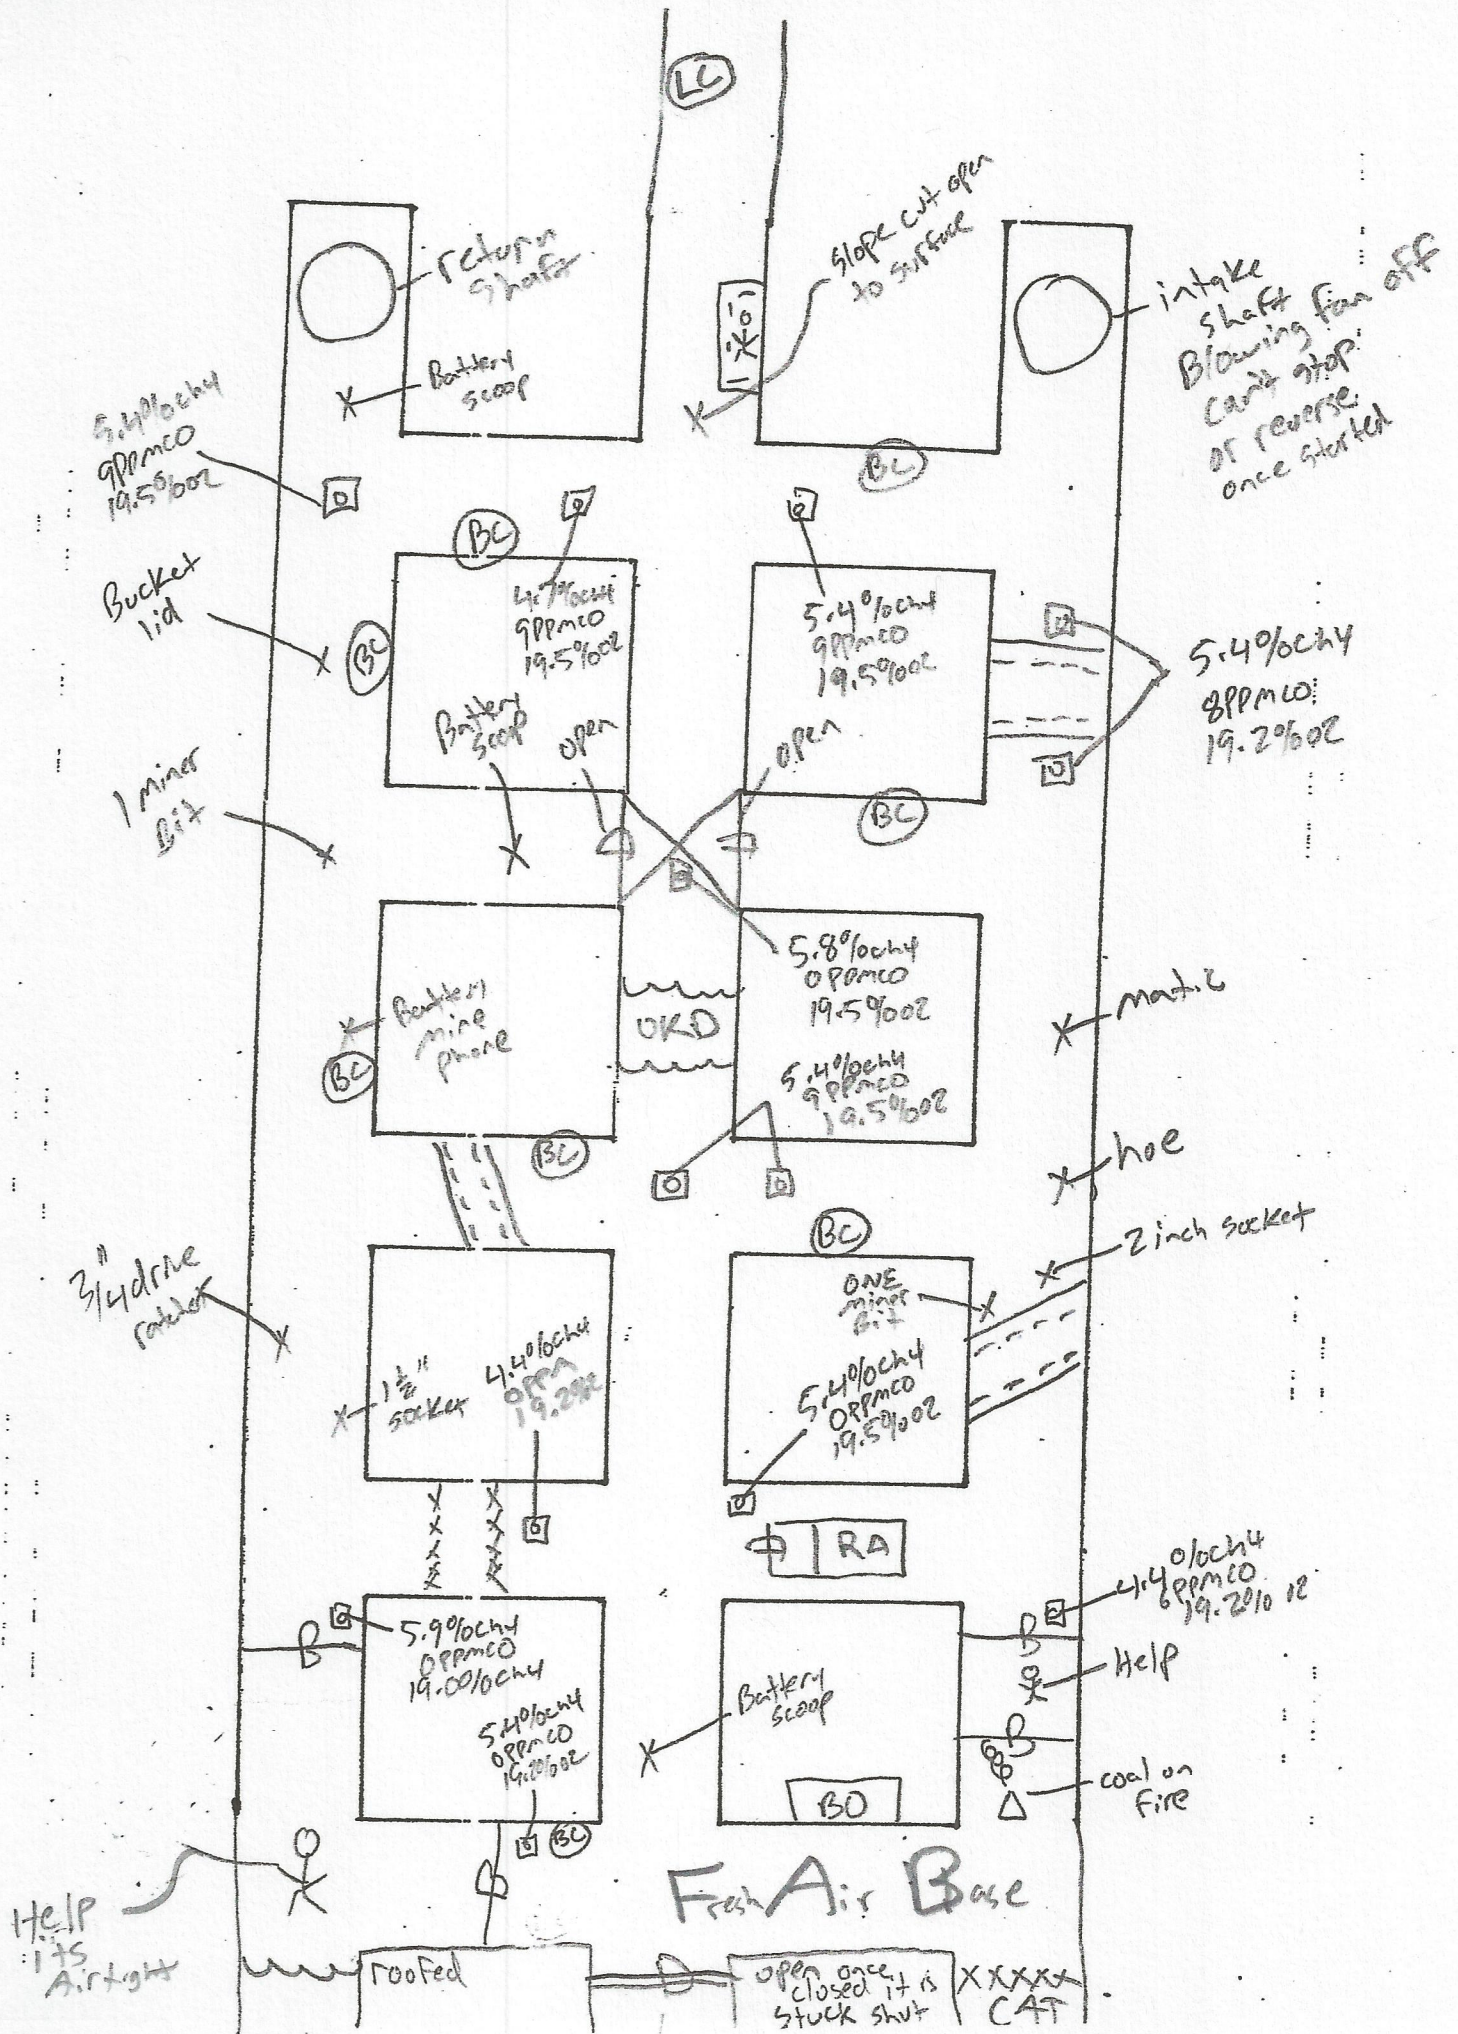 LC
slope cut open
to surface
return
shaft
intake
shaft
Blowing fan off
can't stop
or reverse
once started
Battery
scoop
5.4%ch4
9PPMCO
19.5%O2
BC
BC
4.7%ch4
9PPMCO
19.5%O2
5.4%ch4
9PPMCO
19.5%O2
Bucket
lid
BC
5.4%ch4
8PPMCO
19.2%O2
Battery
scoop
open
open
1 miner
Bit
BC
B
5.8%ch4
0PPMCO
19.5%O2
UKD
Battery
mine
phone
BC
5.4%ch4
9PPMCO
19.5%O2
matic
BC
hoe
BC
2 inch socket
3/4" drive
ratchet
ONE
miner
Bit
1 1/2"
socket
4.4%ch4
0PPM
19.2%O2
5.4%ch4
0PPMCO
19.5%O2
RA
4.4%ch4
6PPMCO
19.2%
B
5.9%ch4
0PPMCO
19.0%ch4
B
Help
5.4%ch4
0PPMCO
19.2%O2
Battery
scoop
B
coal on
fire
BO
BC
Fresh Air Base
Help
its
Airtight
roofed
open once
closed it is
stuck shut
XXXXX
CAT